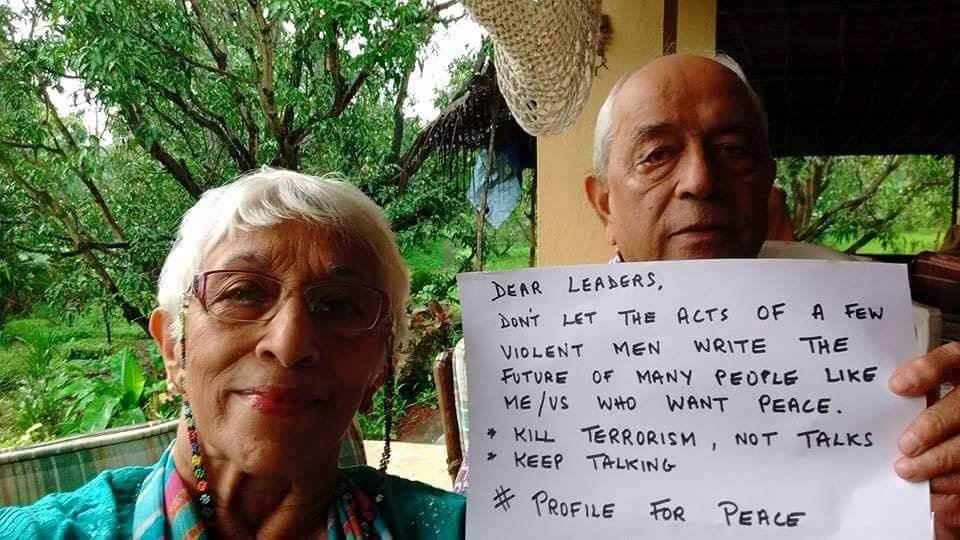 DEAR LEADERS,
DON'T LET THE ACTS OF A FEW
VIOLENT MEN WRITE THE
FUTURE OF MANY PEOPLE LIKE
ME/US WHO WANT PEACE.
* KILL TERRORISM, NOT TALKS
* KEEP TALKING
# PROFILE FOR PEACE